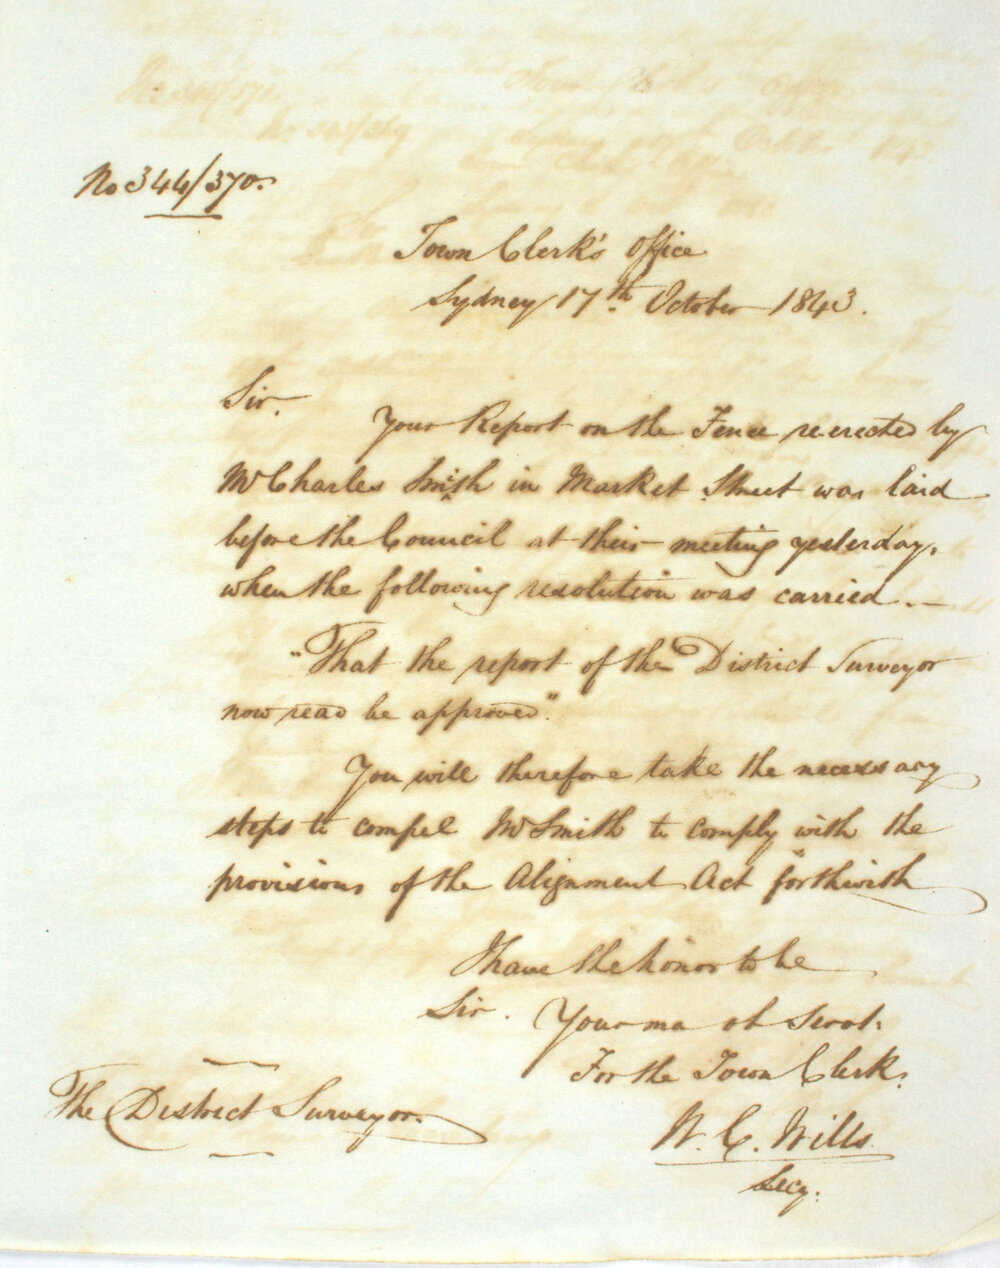 No 344/370.
Town Clerk's Office
Sydney 17th October 1843.
Sir.
Your Report on the Fence re-erected by
Mr Charles Smith in Market Street was laid
before the Council at their meeting yesterday,
when the following resolution was carried.—
"That the report of the District Surveyor
now read be approved".
You will therefore take the necessary
steps to compel Mr Smith to comply with the
provisions of the Alignment Act forthwith
I have the honor to be
Sir.
Your mo ob Servt.
For the Town Clerk.
The District Surveyor.
W. C. Wills
Secy.